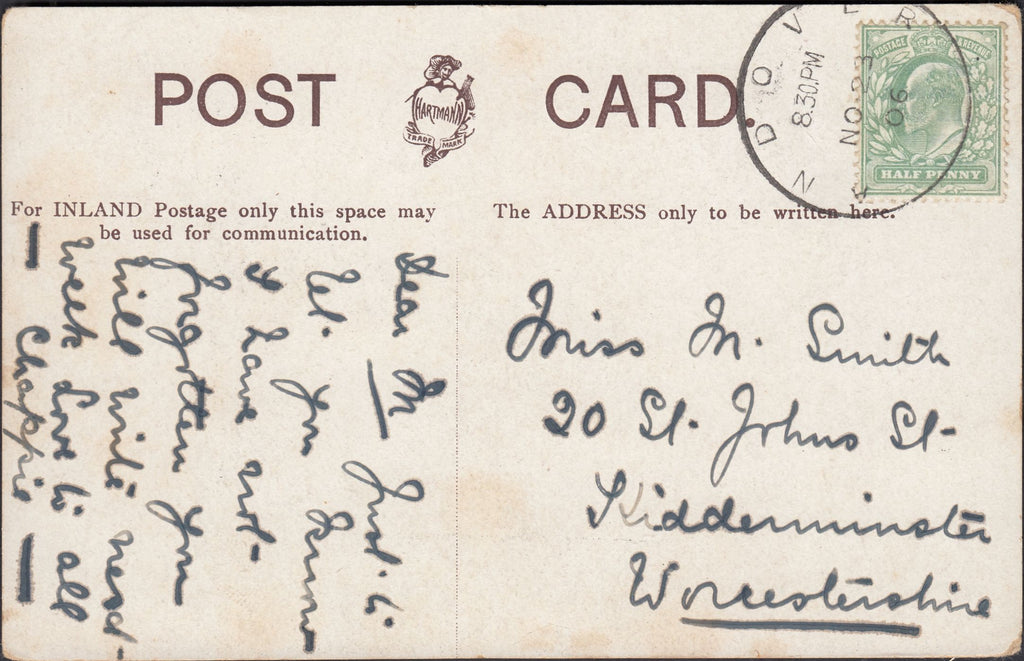 POST CARD.
HARTMANN
TRADE MARK
ANDOVER
8.30.PM
NO 23
06
POSTAGE REVENUE
HALF PENNY
For INLAND Postage only this space may
be used for communication.
The ADDRESS only to be written here.
Dear M Just to
let you know
I have not
forgotten you
will write next
week love to all
— Chappie —
Miss M. Smith
20 St. Johns St.
Kidderminster
Worcestershire